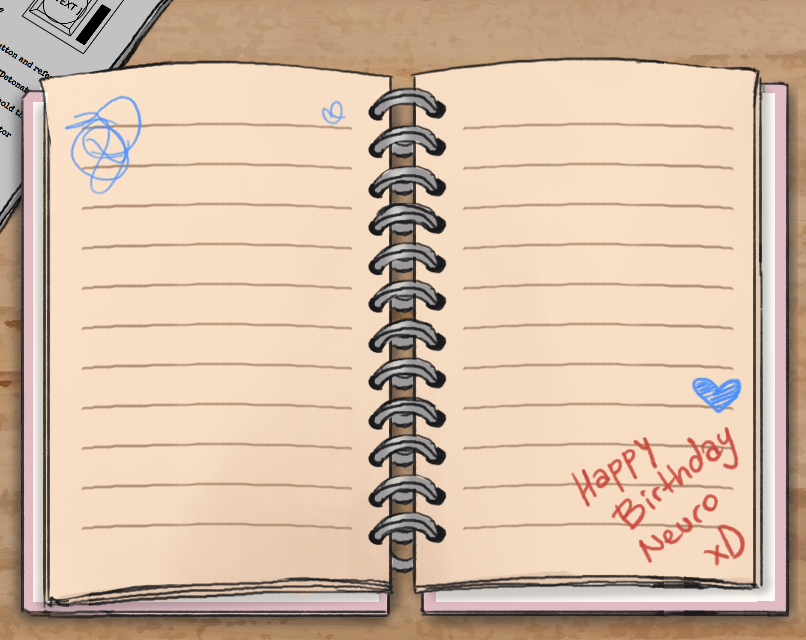 TEXT
tton and refe
Detonat
old th
tor
Happy
Birthday
Neuro
xD